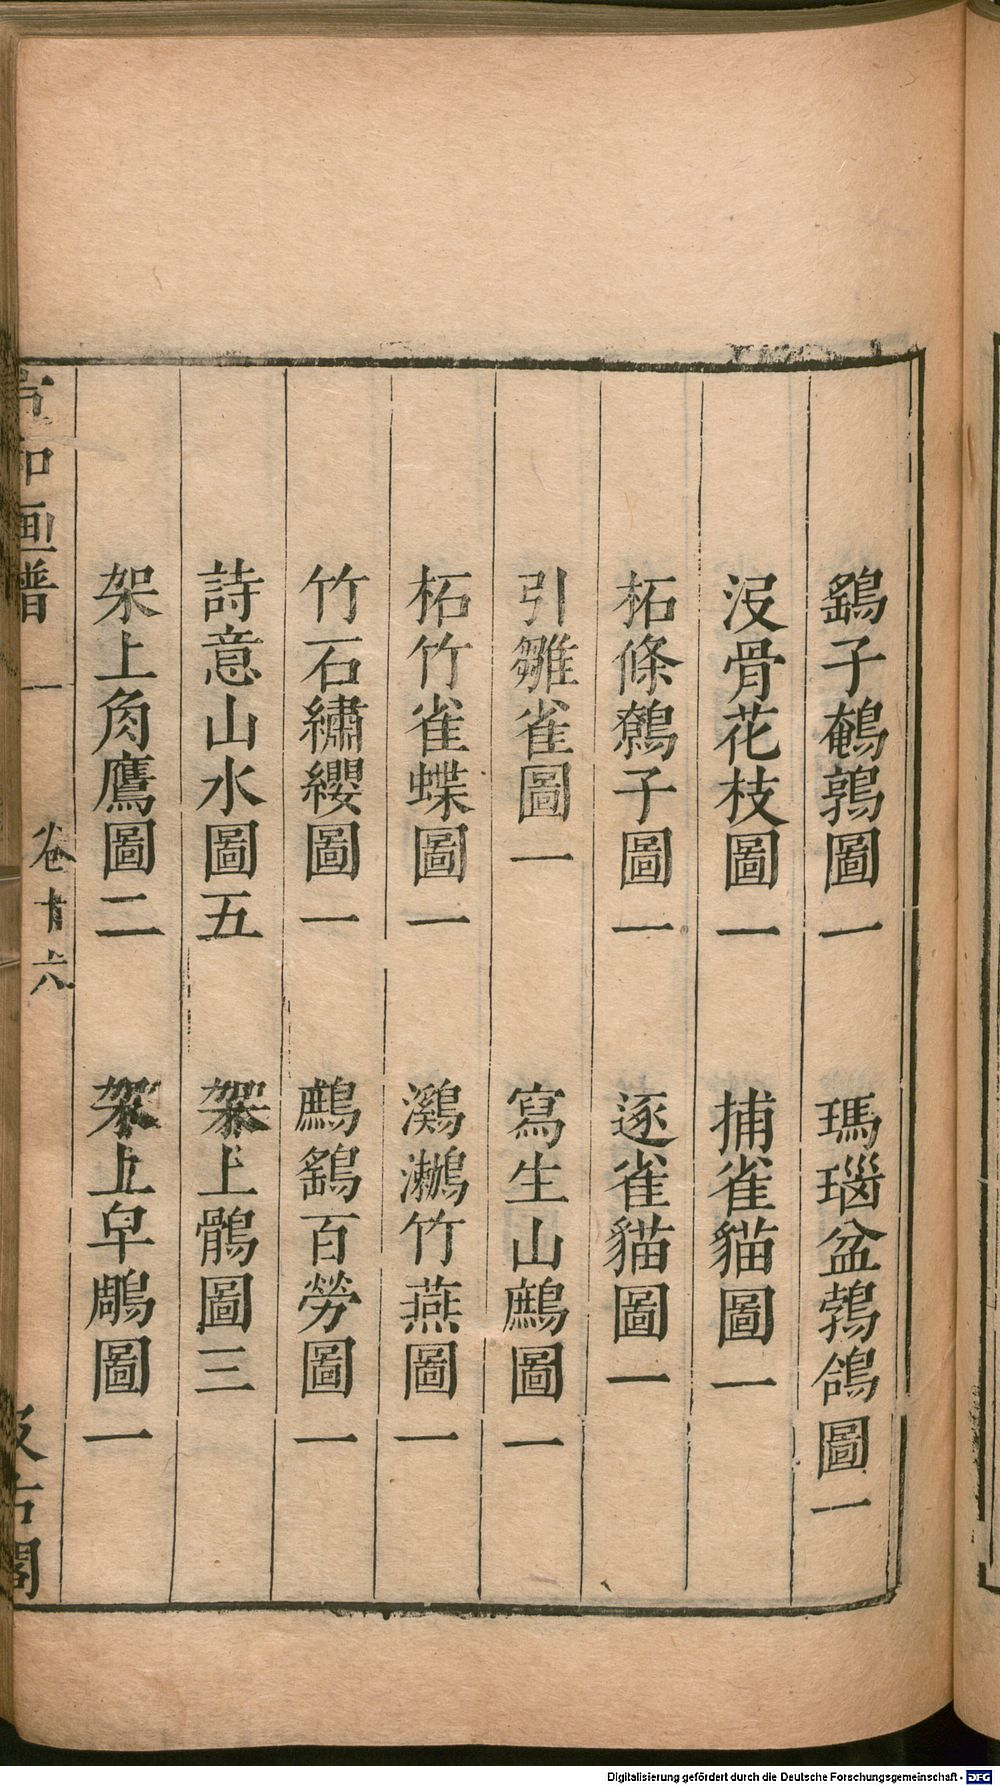 鷂子鵪鶉圖一 瑪瑙盆鵓鴿圖一
沒骨花枝圖一 捕雀貓圖一
柘條鶬子圖一 逐雀貓圖一
引雛雀圖一 寫生山鷓圖一
柘竹雀蝶圖一 鸂鷘竹燕圖一
竹石繡纓圖一 鷓鷂百勞圖一
詩意山水圖五 架上鶻圖三
架上角鷹圖二 架上皁鵰圖一
宣和画譜 卷十六 汲古閣
Digitalisierung gefördert durch die Deutsche Forschungsgemeinschaft - DFG